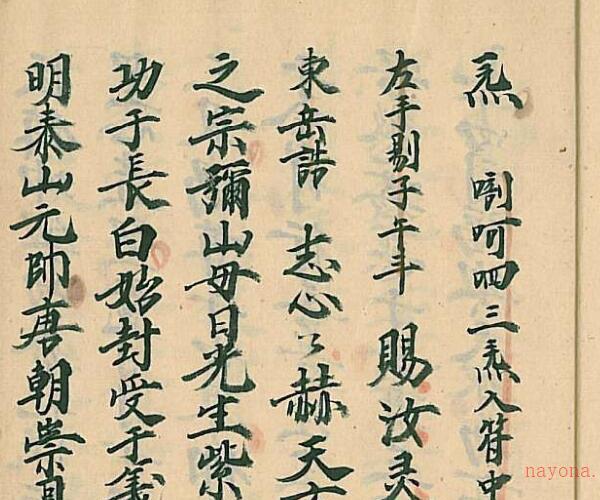 炁 唎呵呬三炁入符中
左手剔子午斗 賜汝灵
東岳誥 志心〻赫天
之宗彌山毋日光生紫
功于長白始封受于
明泰山元帥唐朝崇
nayona.